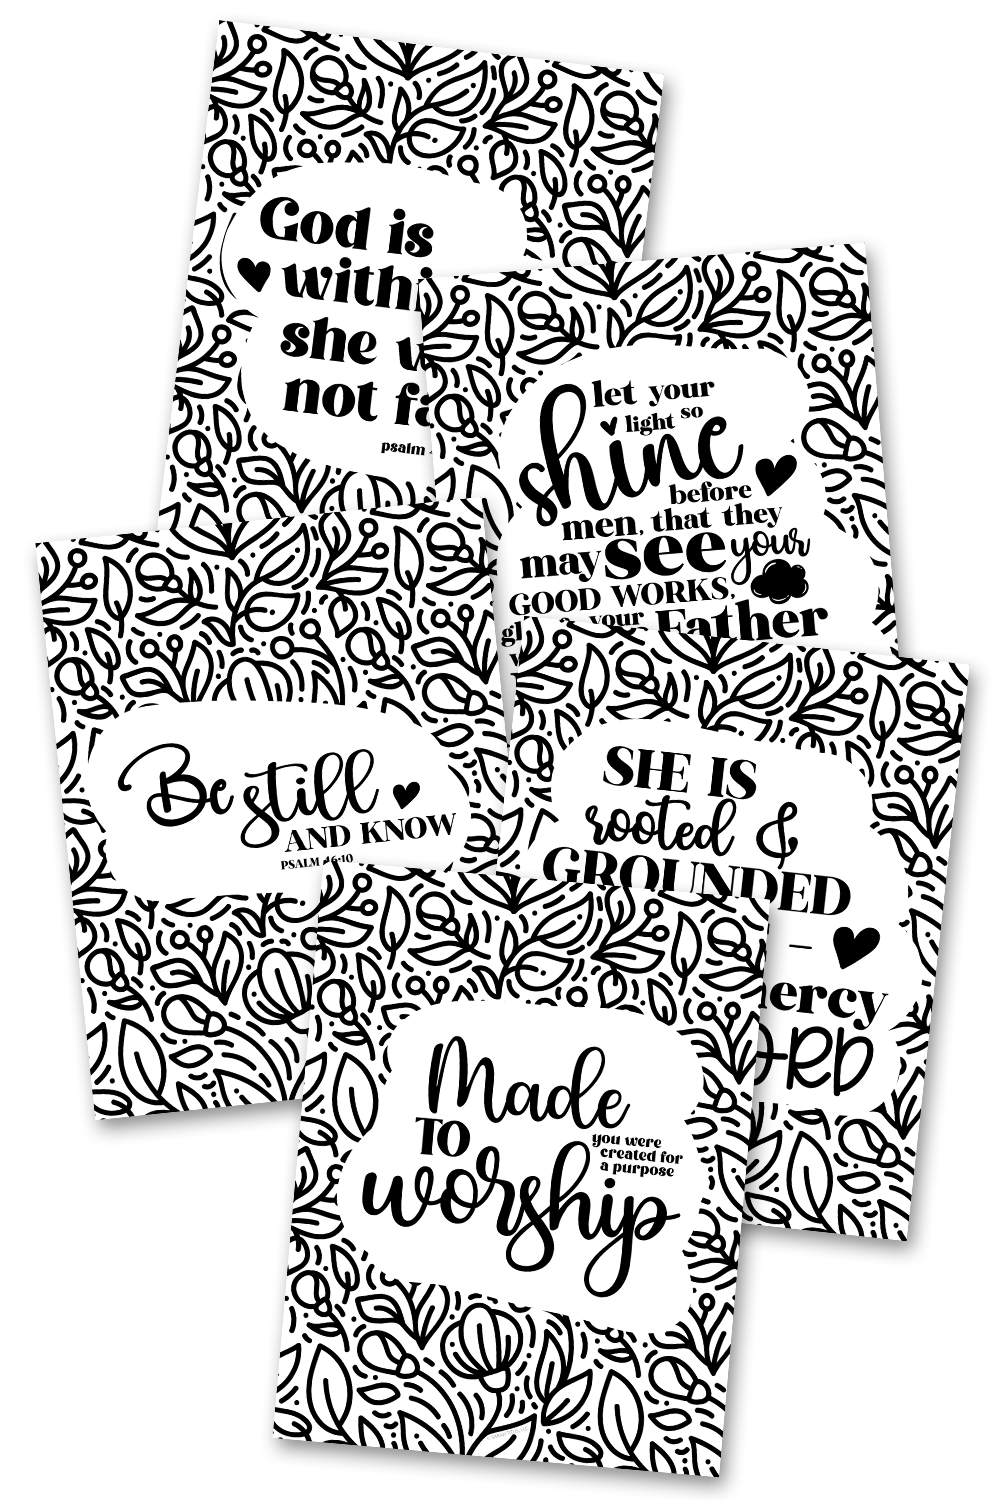 God is
she
not
psalm
let your
light so
shine
before
men, that they
may see your
GOOD WORKS,
your Father
Be still
AND KNOW
PSALM 46:10
SHE IS
rooted &
GROUNDED
Made
TO
you were
created for
a purpose
worship